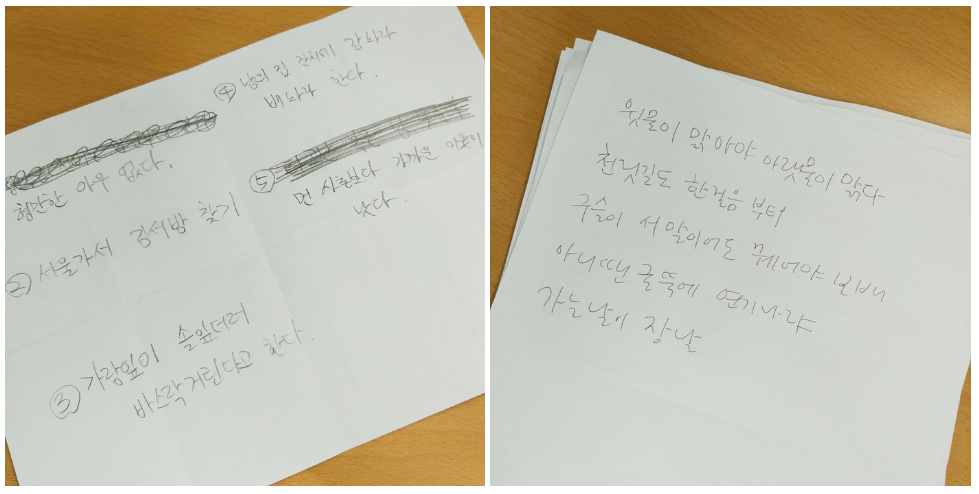 형만한 아우 없다.
② 서울가서 김서방 찾기
③ 가랑잎이 솔잎더러
바스락거린다고 한다.
④ 남의 집 잔치에 감놔라
배놔라 한다.
⑤
먼 사촌보다 가까운 이웃이
낫다.
윗물이 맑아야 아랫물이 맑다
천릿길도 한걸음 부터
구슬이 서 말이어도 꿰어야 보배
아니땐 굴뚝에 연기나랴
가는날이 장날